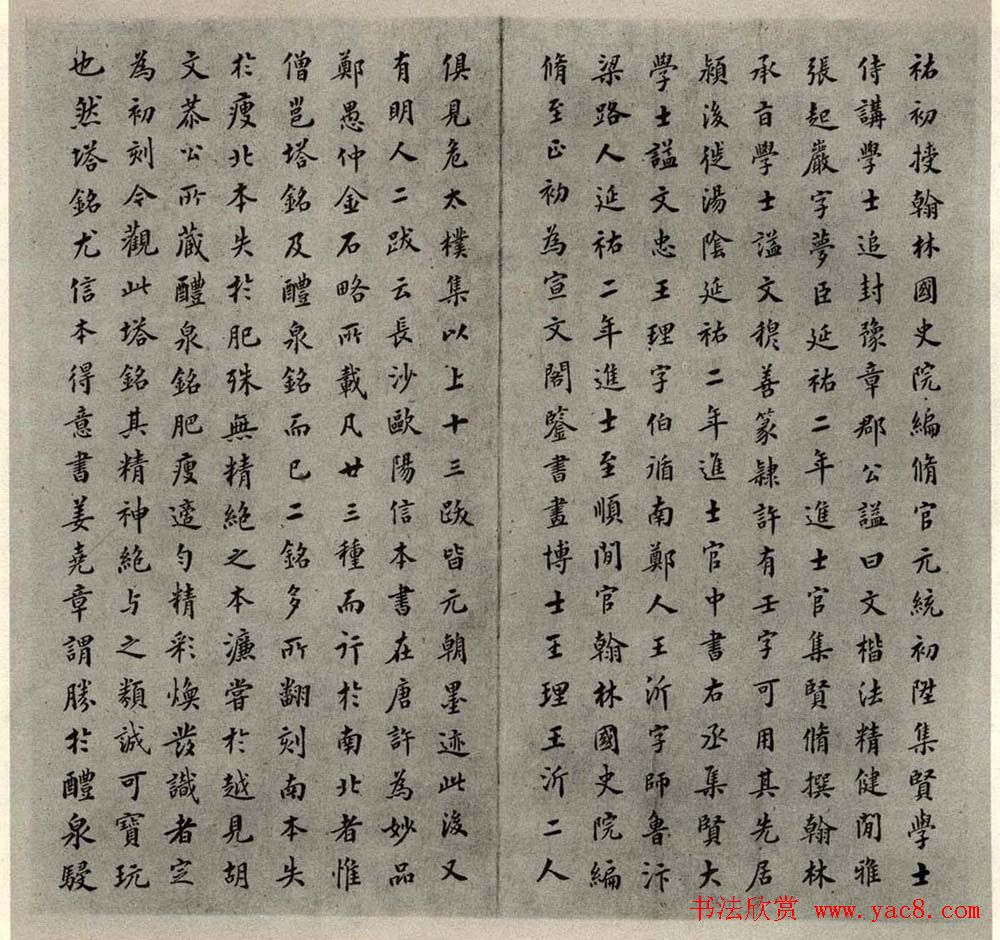 祐初授翰林國史院編脩官元統初陞集賢學士
侍講學士追封豫章郡公謚曰文楷法精健閒雅
張起巖字夢臣延祐二年進士官集賢脩撰翰林
承旨學士謚文穆善篆隸許有壬字可用其先居
潁後徙湯陰延祐二年進士官中書右丞集賢大
學士謚文忠王理字伯循南鄭人王沂字師魯汴
梁路人延祐二年進士至順閒官翰林國史院編
脩至正初為宣文閣鑒書畫博士王理王沂二人
俱見危太樸集以上十三跋皆元朝墨迹此後又
有明人二跋云長沙歐陽信本書在唐許為妙品
鄭愚仲金石略所載凡廿三種而行於南北者惟
僧邕塔銘及醴泉銘而已二銘多所翻刻南本失
於瘦北本失於肥殊無精絕之本濂嘗於越見胡
文恭公所藏醴泉銘肥瘦適勻精彩煥發識者定
為初刻今觀此塔銘其精神絕与之類誠可寶玩
也然塔銘尤信本得意書姜堯章謂勝於醴泉駸
书法欣赏 www.yac8.com